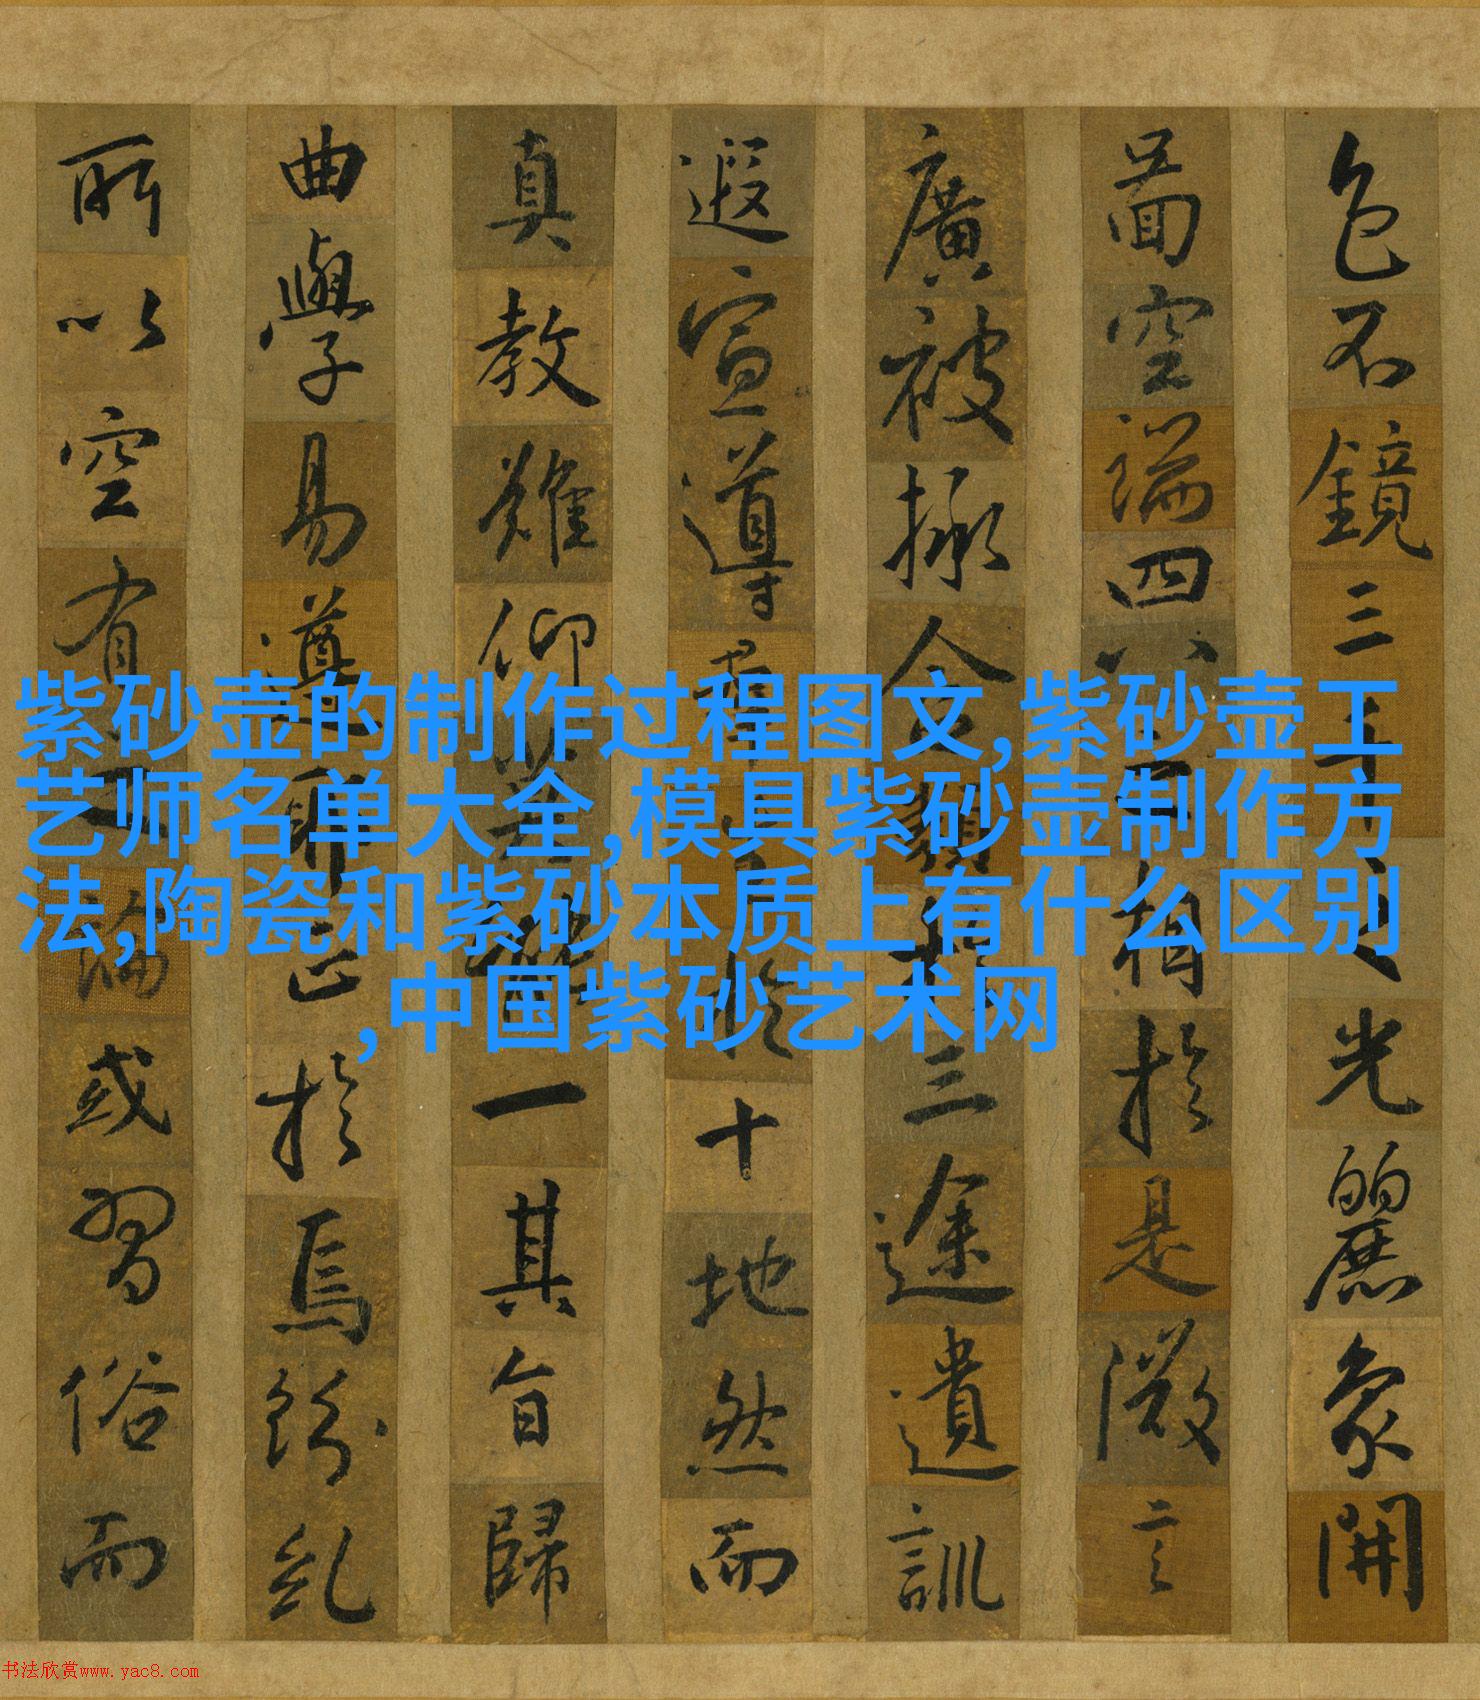 色不鏡三千之光麗象開
啚空端四八之相於是微言
廣被拯含類於三途遺訓
遐宣導群生於十地然而
真教難仰莫能一其旨歸
曲學易遵耶正於焉紛糺
所以空有之論或習俗而
紫砂壶的制作过程图文,紫砂壶工
艺师名单大全,模具紫砂壶制作方
法,陶瓷和紫砂本质上有什么区别
,中国紫砂艺术网
书法欣赏www.yac8.com